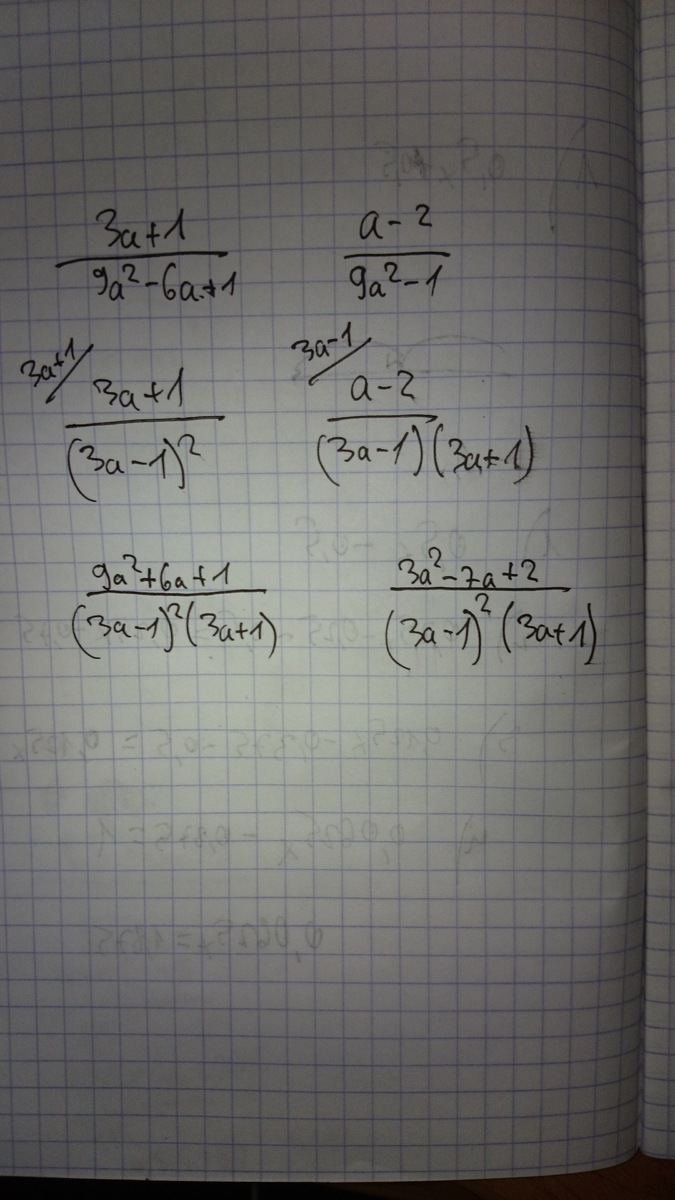 3a+1 a-2
9a²-6a+1 9a²-1
3a+1/ 3a-1/
3a+1 a-2
(3a-1)² (3a-1)(3a+1)
9a²+6a+1 3a²-7a+2
(3a-1)²(3a+1) (3a-1)²(3a+1)